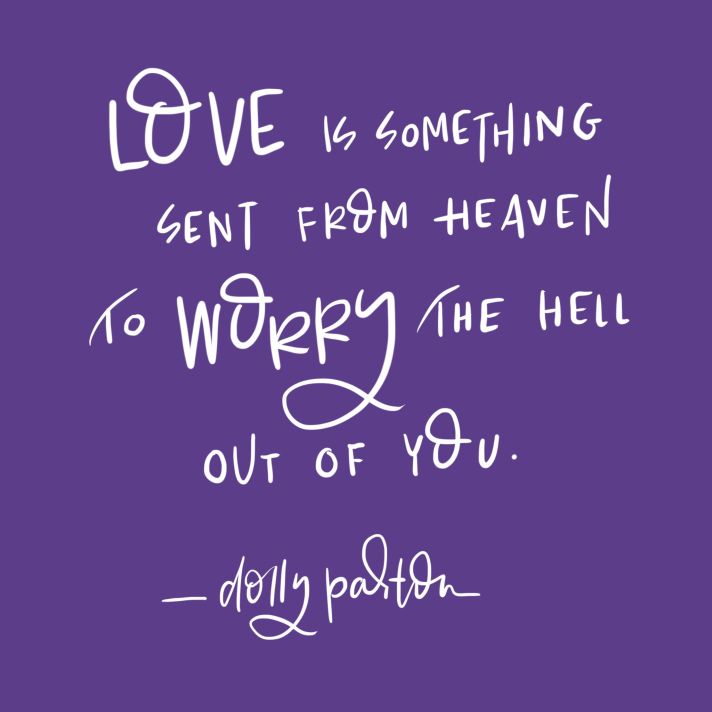 LOVE IS SOMETHING
SENT FROM HEAVEN
TO WORRY THE HELL
OUT OF YOU.
— dolly parton